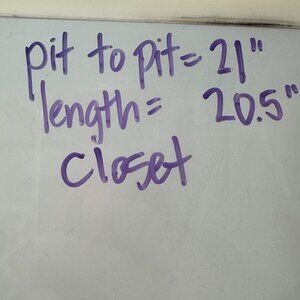 pit to pit= 21"
length= 20.5"
Closet